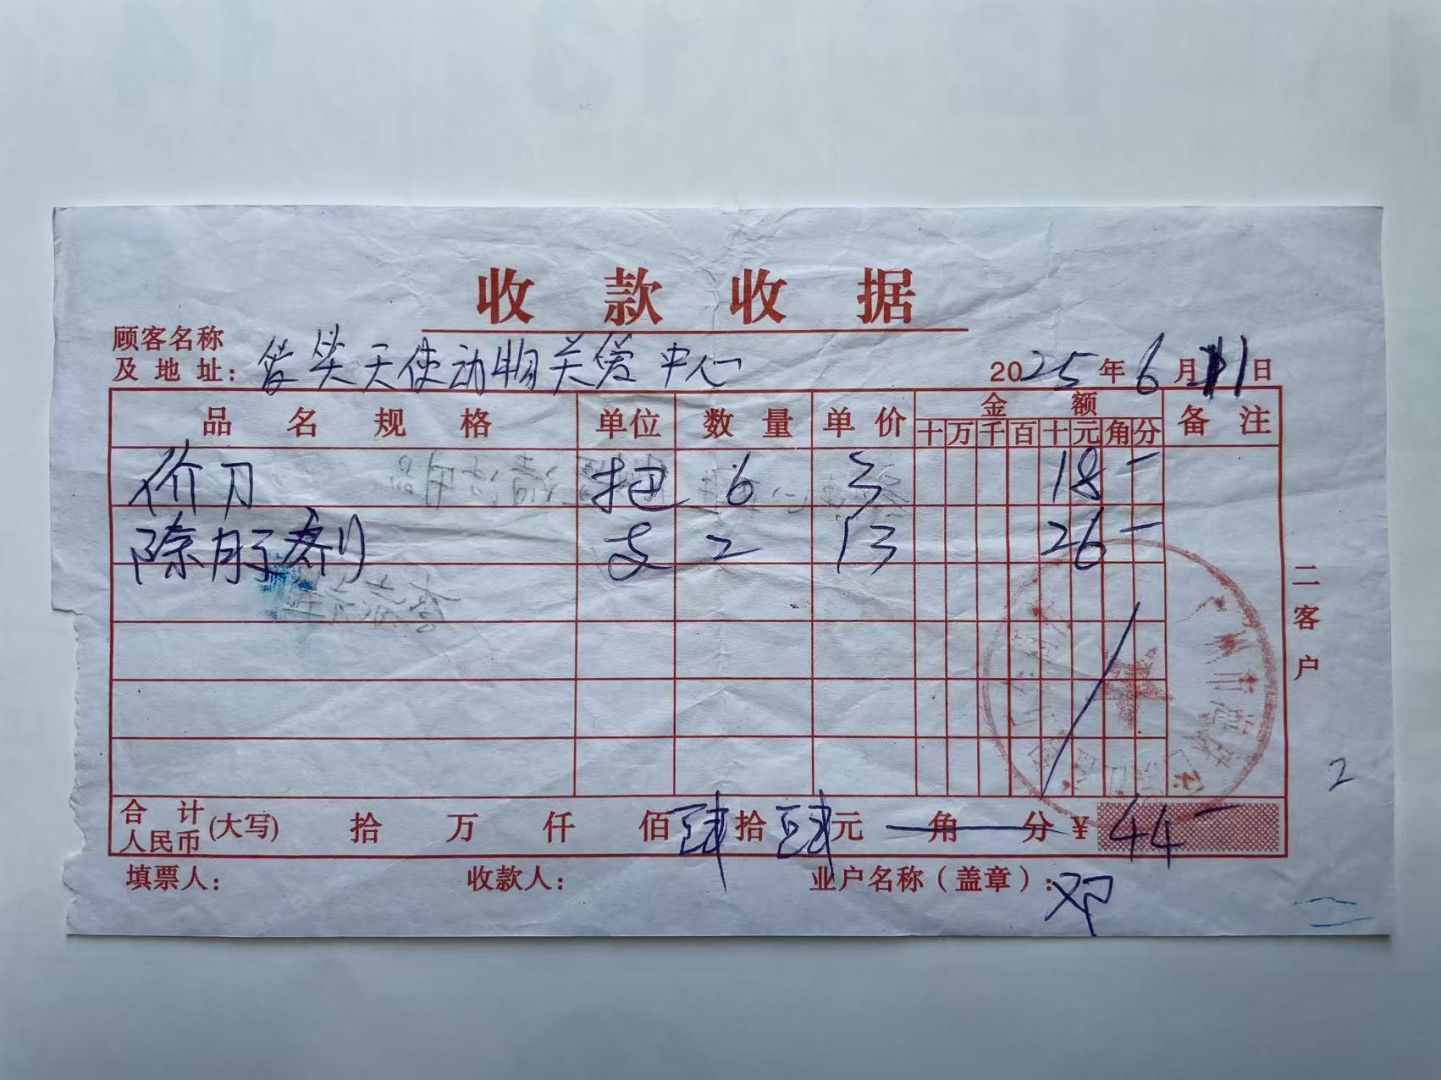 收款收据
顾客名称
及地址: 笑天使动物关爱中心 2025年6月11日
品名规格 单位 数量 单价 金额 备注
十万千百十元角分
价刀 把 6 3 18-
除胶剂 支 2 13 26-
二客户
2
合计人民币(大写) 拾 万 仟 佰 肆拾肆元 角 分 ¥44-
填票人: 收款人: 业户名称(盖章): 邓